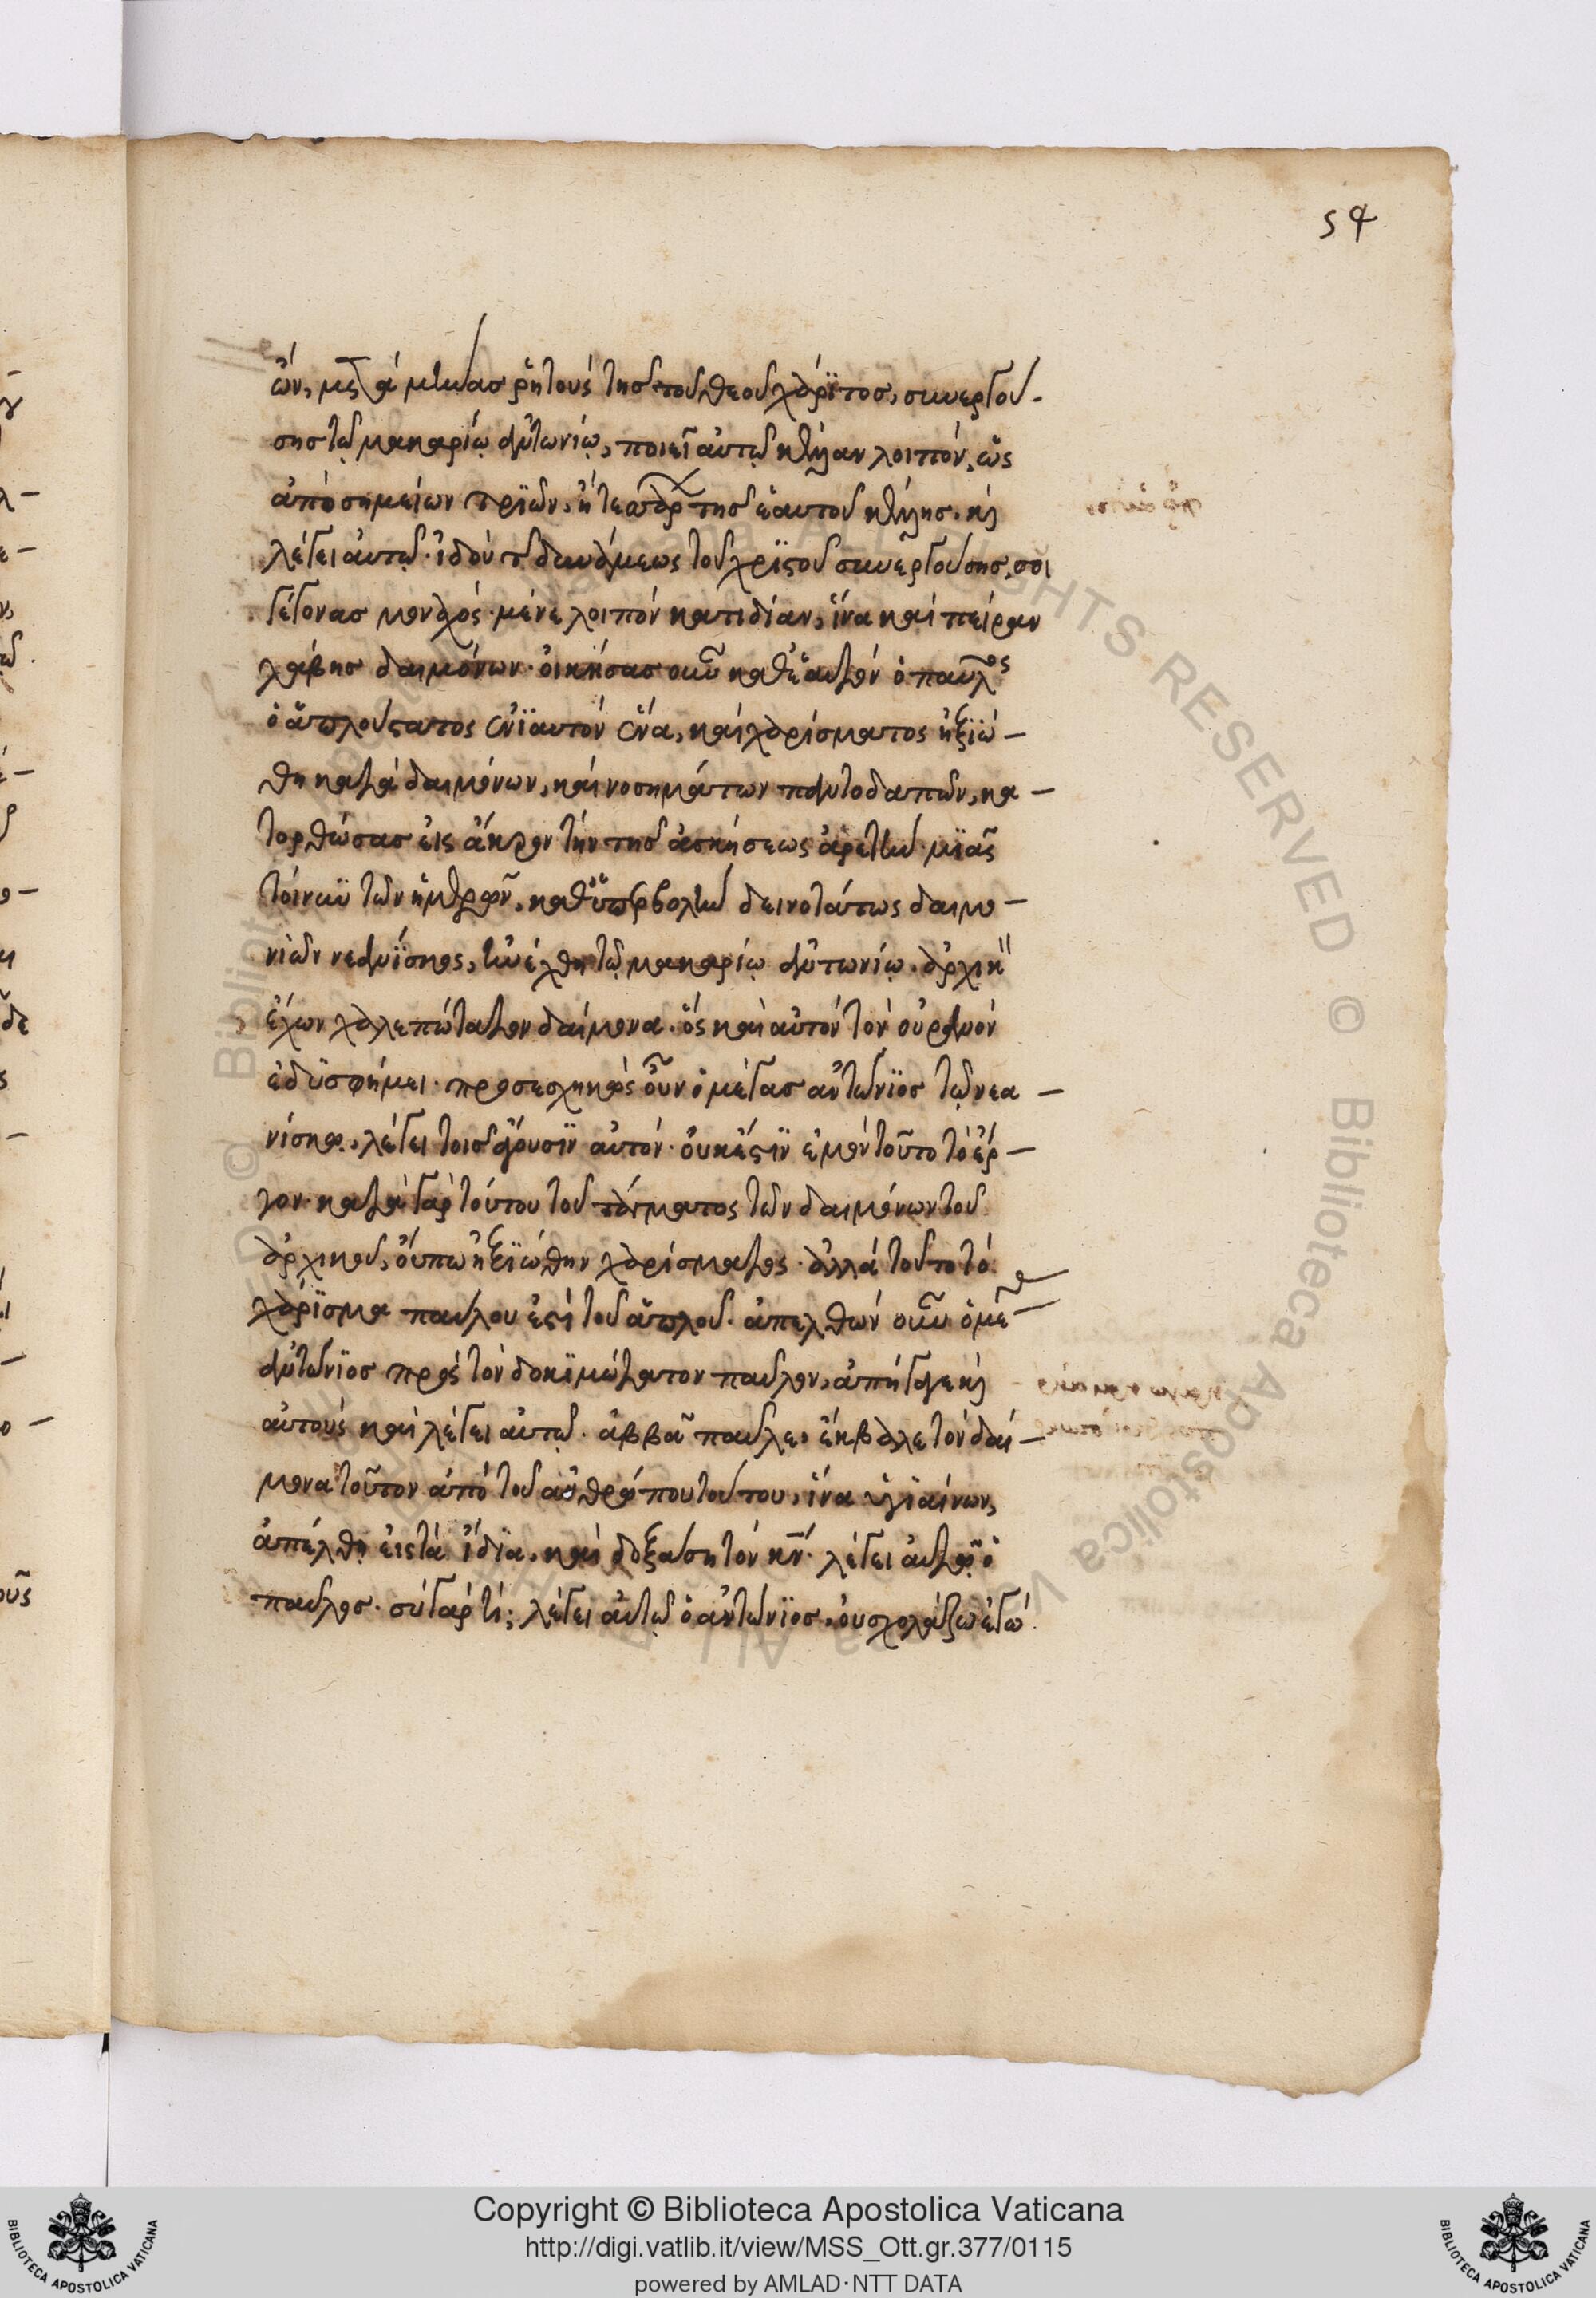 54
ὢν, μετὰ μῆνας ῥητοὺς τῆς τοῦ θεοῦ χάρϊτος, συνεργού-
σης τῷ μακαρίῳ ἀντωνίῳ, ποιεῖ αὐτῷ κέλλαν λοιπὸν, ὡς
ἀπὸ σημείων τρϊῶν, ἢ τεσσάρων τῆς ἑαυτοῦ κέλλης. καὶ
λέγει αὐτῷ· ἰδοὺ τῆς δυνάμεως τοῦ χριστοῦ συνεργούσης, σοι
γέγονας μοναχός· μένε λοιπὸν κατιδίαν, ἵνα καὶ πείραν
λάβης δαιμόνων· οἰκήσας οὖν καθ' ἑαυτὸν ὁ παῦλος
ὁ ἁπλούστατος ἐνϊαυτὸν ἕνα, καὶ χαρίσματος ἠξϊώ-
θη κατὰ δαιμόνων, καὶ νοσημάτων παντοδαπῶν, κα-
τορθώσας εἰς ἄκρον τὴν τῆς ἀσκήσεως ἀρετὴν· μϊᾶς
τοίνυν τῶν ἡμερῶν, καθ' ὑπερβολὴν δεινοτάτως δαιμο-
νιῶν νεανΐσκος, ἠνέχθη τῷ μακαρίῳ ἀντωνίῳ. ἀρχικὸν
ἔχων χαλεπώτατον δαίμονα. ὃς καὶ αὐτὸν τὸν οὐρανὸν
ἐδϋσφήμει· προσεσχηκὼς οὖν ὁ μέγας ἀντώνϊος τῷ νεα-
νίσκῳ, λέγει τοῖς ἄγουσϊν αὐτὸν· οὐκ ἔστϊν ἐμὸν τοῦτο τὸ ἔρ-
γον· κατὰ γὰρ τούτου τοῦ τάγματος τῶν δαιμόνων τοῦ
ἀρχικοῦ, οὔπω ἠξϊώθην χαρίσματος· ἀλλὰ τοῦτο τὸ
χάρϊσμα παύλου ἐστὶ τοῦ ἁπλοῦ. ἀπελθὼν οὖν ὁ μέγας
ἀντώνϊος πρὸς τὸν δοκϊμώτατον παῦλον, ἀπήγαγε καὶ
αὐτοὺς καὶ λέγει αὐτῷ· ἀββᾶ παῦλε, ἔκβαλε τὸν δαί-
μονα τοῦτον ἀπὸ τοῦ ἀνθρώπου τούτου, ἵνα ὑγϊαίνων,
ἀπέλθη εἰς τὰ ἴδϊα, καὶ δοξάση τὸν κν̄· λέγει αὐτῷ ὁ
παῦλος· σὺ γὰρ τί; λέγει αὐτῷ ὁ ἀντώνϊος, οὐ σχολάζω ἐγὼ
Copyright © Biblioteca Apostolica Vaticana
http://digi.vatlib.it/view/MSS_Ott.gr.377/0115
powered by AMLAD·NTT DATA